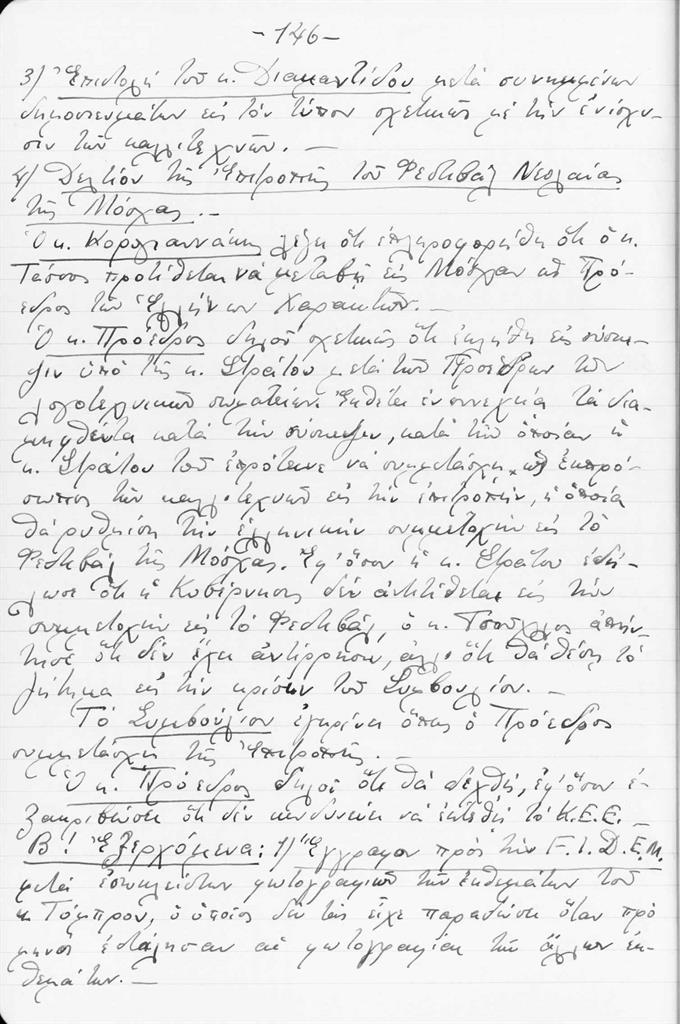 -146-
3) Ἐπιστολή τοῦ κ. Διαμαντίδου μετά συνημμένων
δημοσιευμάτων εἰς τόν τύπον σχετικῶς μέ τήν ἐνίσχυ-
σιν τῶν καλλιτεχνῶν. —
4) Δελτίον τῆς Ἐπιτροπῆς τοῦ Φεστιβάλ Νεολαίας
τῆς Μόσχας. —
Ὁ κ. Κορογιαννάκης λέγει ὅτι ἐπληροφορήθη ὅτι ὁ κ.
Τάσσος προτίθεται νά μεταβῇ εἰς Μόσχαν ὡς Πρό-
εδρος τῶν Ἑλλήνων Χαρακτῶν. —
Ὁ κ. Πρόεδρος δηλοῖ σχετικῶς ὅτι ἐκλήθη εἰς σύσκε-
ψιν ὑπό τῆς κ. Στράτου μετά τῶν Προέδρων τῶν
λογοτεχνικῶν σωματείων. Ἐκθέτει ἐν συνεχείᾳ τά δια-
μειφθέντα κατά τήν σύσκεψιν, κατά τήν ὁποίαν ἡ
κ. Στράτου τοῦ ἐπρότεινε νά συμμετάσχῃ ὡς ἐκπρό-
σωπος τῶν καλλιτεχνῶν εἰς τήν ἐπιτροπήν, ἡ ὁποία
θά ρυθμίσῃ τήν ἑλληνικήν συμμετοχήν εἰς τό
Φεστιβάλ τῆς Μόσχας. Ἐφ' ὅσον ἡ κ. Στράτου ἐδή-
λωσε ὅτι ἡ Κυβέρνησις δέν ἀντιτίθεται εἰς τήν
συμμετοχήν εἰς τό Φεστιβάλ, ὁ κ. ἀπήν-
τησε ὅτι δέν ἔχει ἀντίρρησιν, ἀλλ' ὅτι θά θέσῃ τό
ζήτημα εἰς τήν κρίσιν τοῦ Συμβουλίου. —
Τό Συμβούλιον ἐγκρίνει ὅπως ὁ Πρόεδρος
συμμετάσχῃ τῆς Ἐπιτροπῆς. —
Ὁ κ. Πρόεδρος δηλοῖ ὅτι θά δεχθῇ, ἐφ' ὅσον ἐ-
ξακριβώσει ὅτι δέν κινδυνεύει νά ἐκτεθῇ τό Κ.Ε.Ε. —
Β! Ἐξερχόμενα: 1) Ἔγγραφον πρός τήν F.I.D.E.M.
μετά ἐσωκλείστων φωτογραφιῶν τῶν ἐκθεμάτων τοῦ
κ. Τόμπρου, ὁ ὁποῖος δέν τάς εἶχε παραδώσει ὅταν πρό
μηνός ἐστάλησαν αἱ φωτογραφίαι τῶν ἄλλων ἐκ-
θεμάτων. —